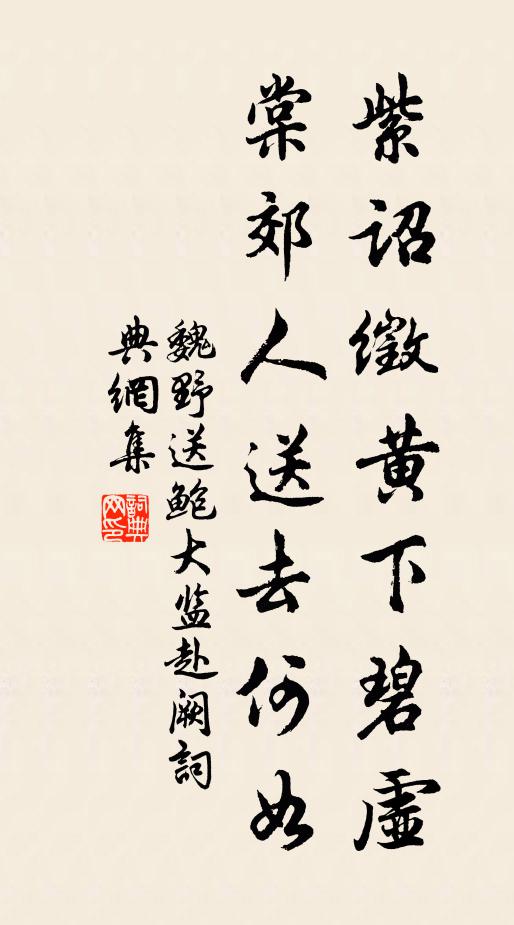 紫詔徵黃下碧虛
棠郊人送去何如
魏野送鮑大监赴阙詞
典網集
詞典网印